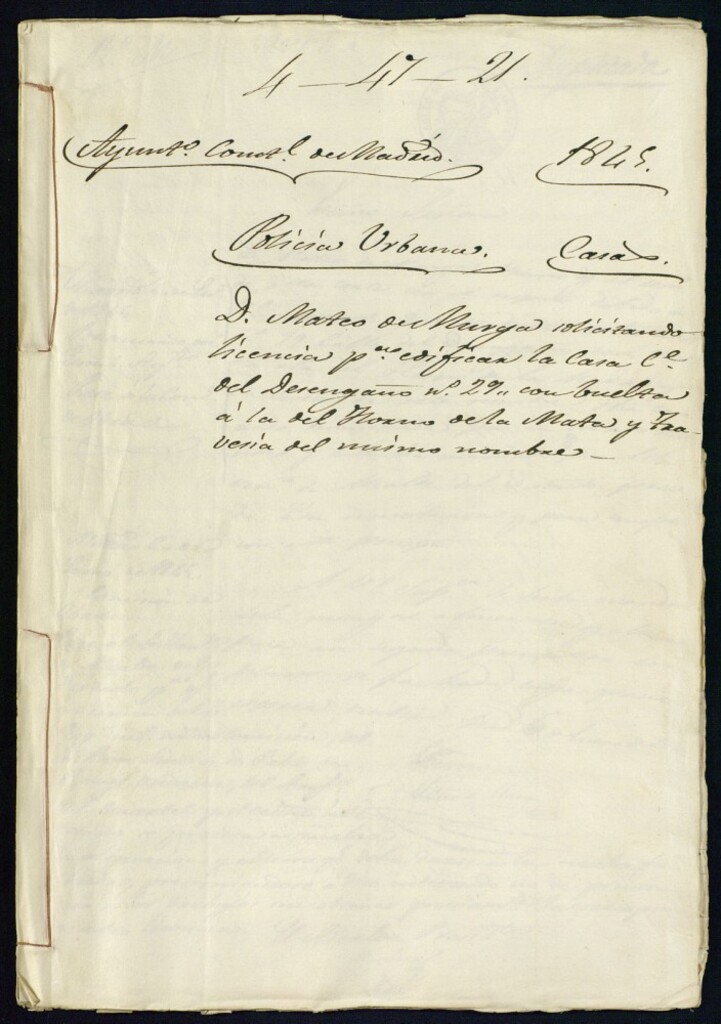 4 - 47 - 21.
Ayunt.o Const.l de Madrid. 1845.
Policia Urbana. Casas.
D. Mateo de Murga solicitando
licencia p.ra edificar la Casa C.e
del Desengaño n.o 29,, con buelta
á la del Horno de la Mata y tra-
vesia del mismo nombre -